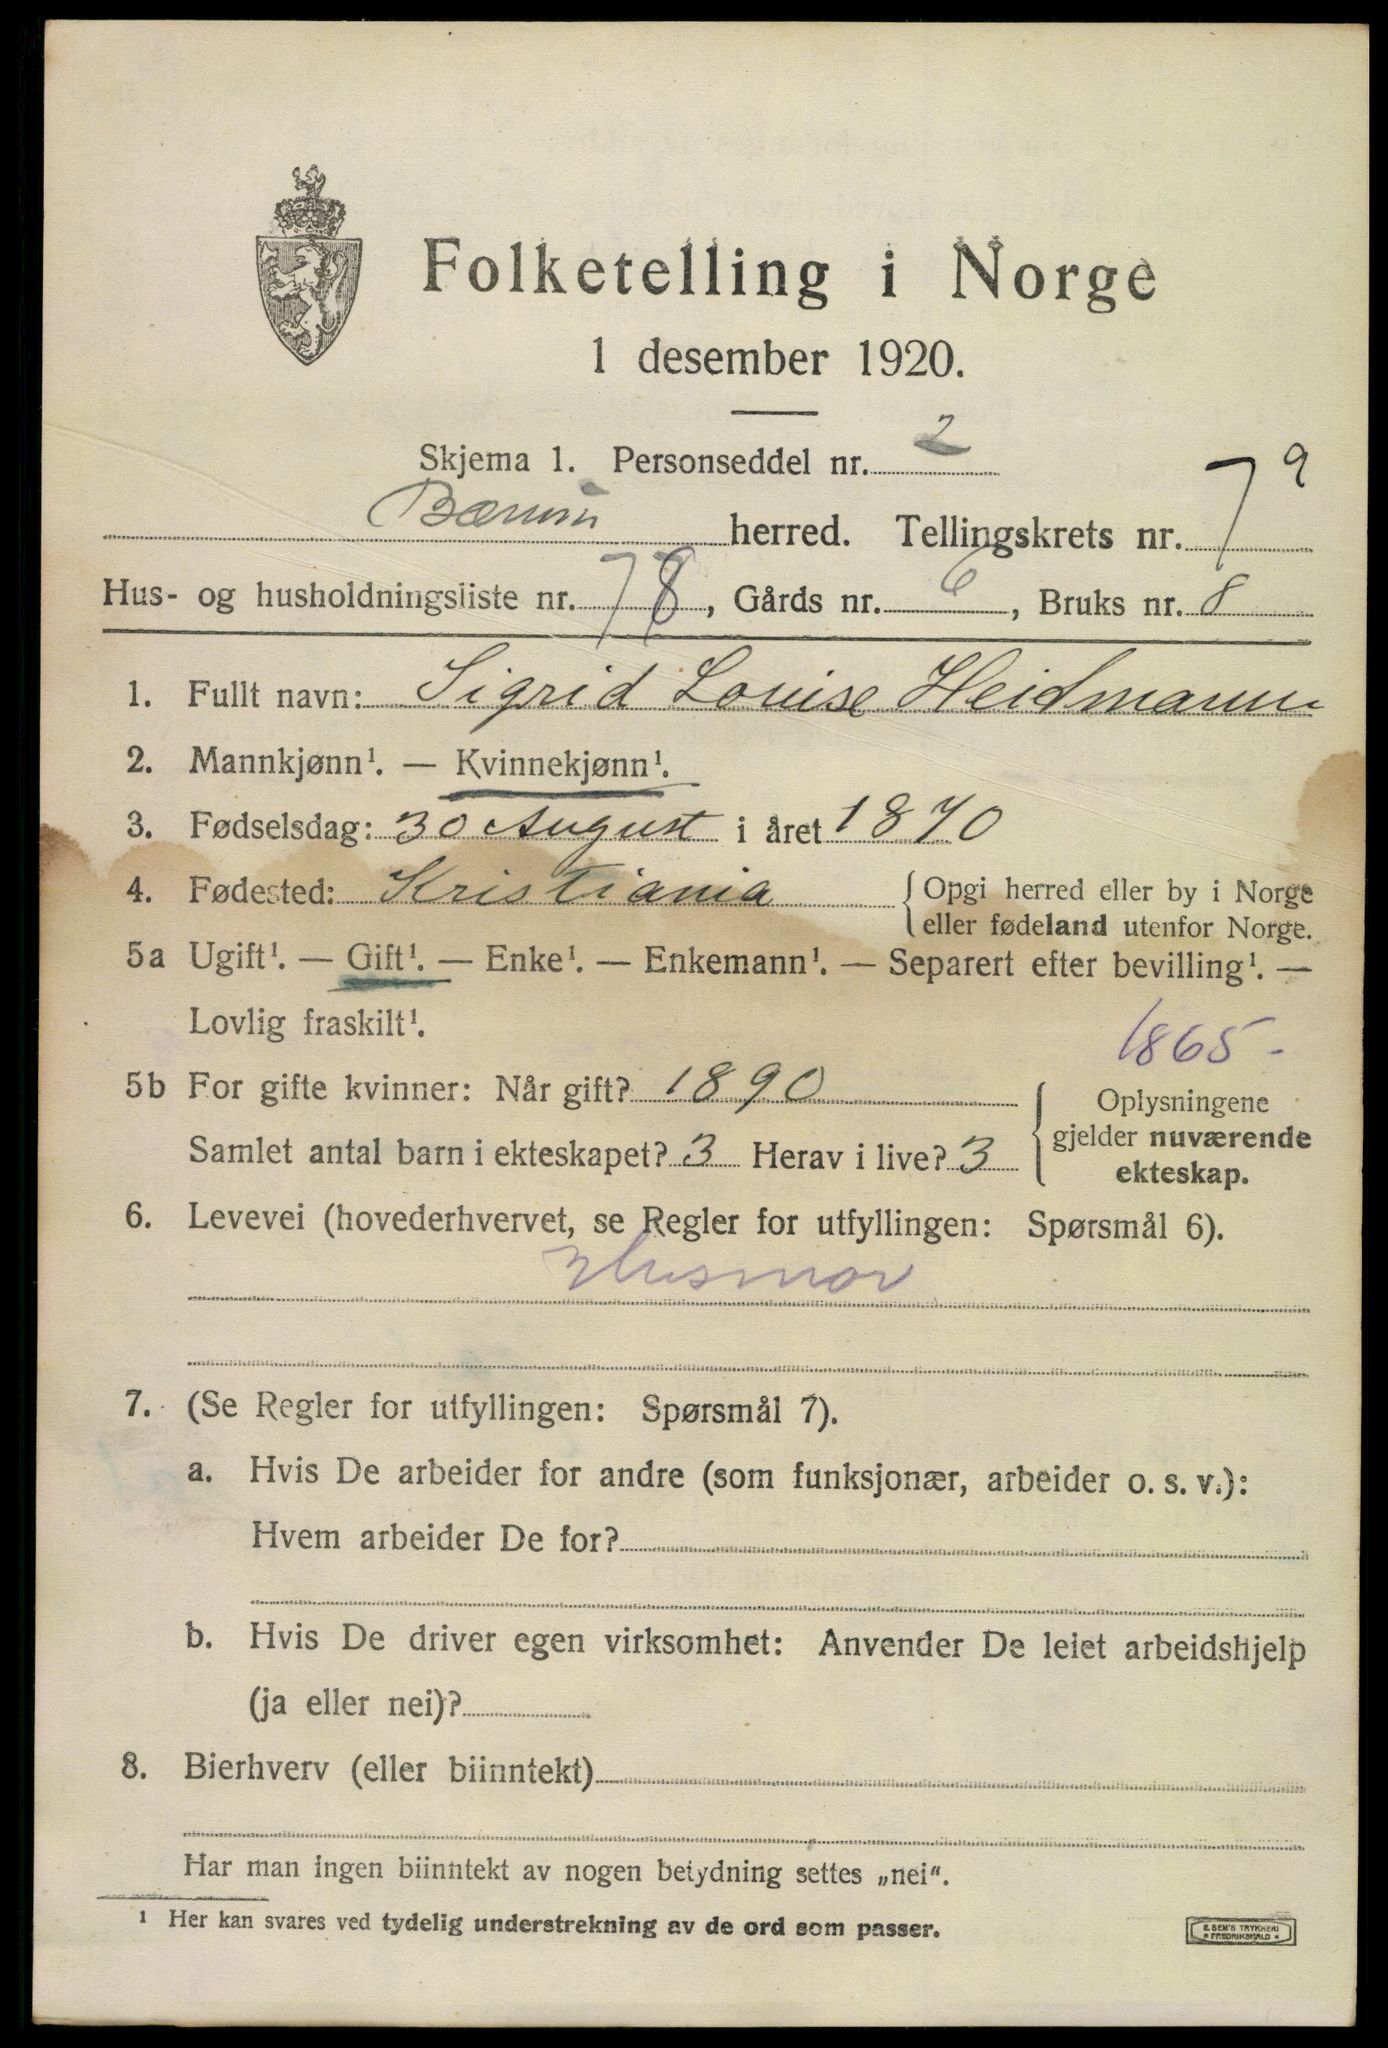 Folketelling i Norge
1 desember 1920.
Skjema 1. Personseddel nr. 2
Bærum herred. Tellingskrets nr. 7 9
Hus- og husholdningsliste nr. 78, Gårds nr. 6, Bruks nr. 8
1. Fullt navn: Sigrid Louise Heidmann
2. Mannkjønn¹. — Kvinnekjønn¹.
3. Fødselsdag: 30 August i året 1870
4. Fødested: Kristiania { Opgi herred eller by i Norge
eller fødeland utenfor Norge.
5a Ugift¹. — Gift¹. — Enke¹. — Enkemann¹. — Separert efter bevilling¹. —
Lovlig fraskilt¹.
1865-
5b For gifte kvinner: Når gift? 1890
Samlet antal barn i ekteskapet? 3 Herav i live? 3
{ Oplysningene
gjelder nuværende
ekteskap.
6. Levevei (hovederhvervet, se Regler for utfyllingen: Spørsmål 6).
Husmor
7. (Se Regler for utfyllingen: Spørsmål 7).
a. Hvis De arbeider for andre (som funksjonær, arbeider o. s. v.):
Hvem arbeider De for?
b. Hvis De driver egen virksomhet: Anvender De leiet arbeidshjelp
(ja eller nei)?
8. Bierhverv (eller biinntekt)
Har man ingen biinntekt av nogen betydning settes „nei“.
¹ Her kan svares ved tydelig understrekning av de ord som passer.
E. SEM'S TRYKKERI
• FREDRIKSHALD •